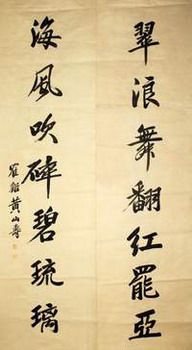 翠浪舞翻红罷亞
海風吹碎碧琉璃
黄山壽